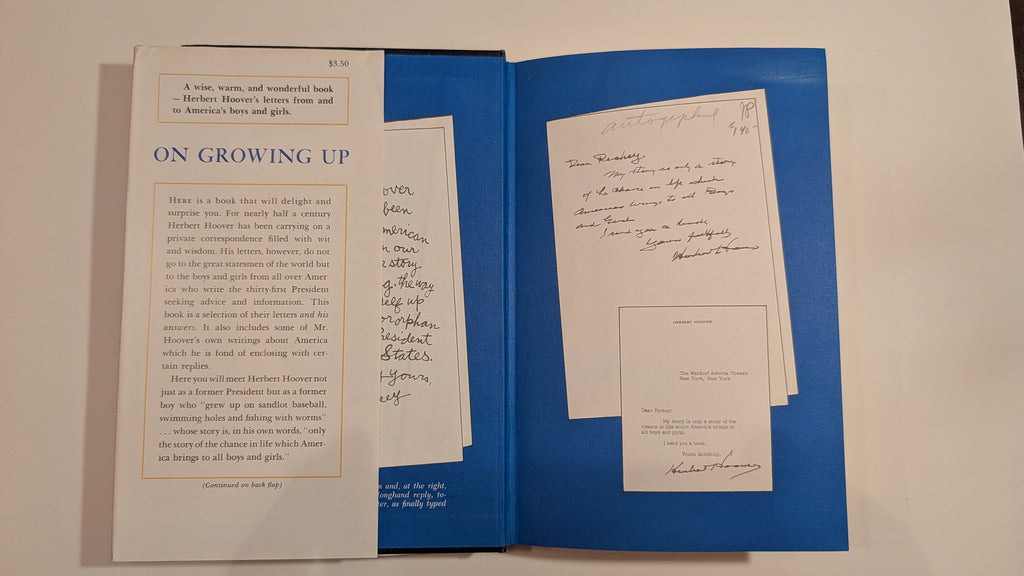 $3.50
A wise, warm, and wonderful book
— Herbert Hoover's letters from and
to America's boys and girls.
ON GROWING UP
HERE is a book that will delight and
surprise you. For nearly half a century
Herbert Hoover has been carrying on a
private correspondence filled with wit
and wisdom. His letters, however, do not
go to the great statesmen of the world but
to the boys and girls from all over Amer-
ica who write the thirty-first President
seeking advice and information. This
book is a selection of their letters and his
answers. It also includes some of Mr.
Hoover's own writings about America
which he is fond of enclosing with cer-
tain replies.
Here you will meet Herbert Hoover not
just as a former President but as a former
boy who "grew up on sandlot baseball,
swimming holes and fishing with worms"
. . . whose story is, in his own words, "only
the story of the chance in life which Amer-
ica brings to all boys and girls."
(Continued on back flap)
over
been
merican
n our
story
g. the way
self up
orphan
President
States.
yours,
ey
n and, at the right,
onghand reply, to-
ter, as finally typed
autographed
Dear Rickey
My story is only a story
of the chance in life which
America brings to all Boys
and Girls
I send you a book
Yours faithfully
Herbert Hoover
HERBERT HOOVER
The Waldorf Astoria Towers
New York, New York
Dear Rickey:
My story is only a story of the
chance in life which America brings to
all boys and girls.
I send you a book.
Yours faithfully,
Herbert Hoover